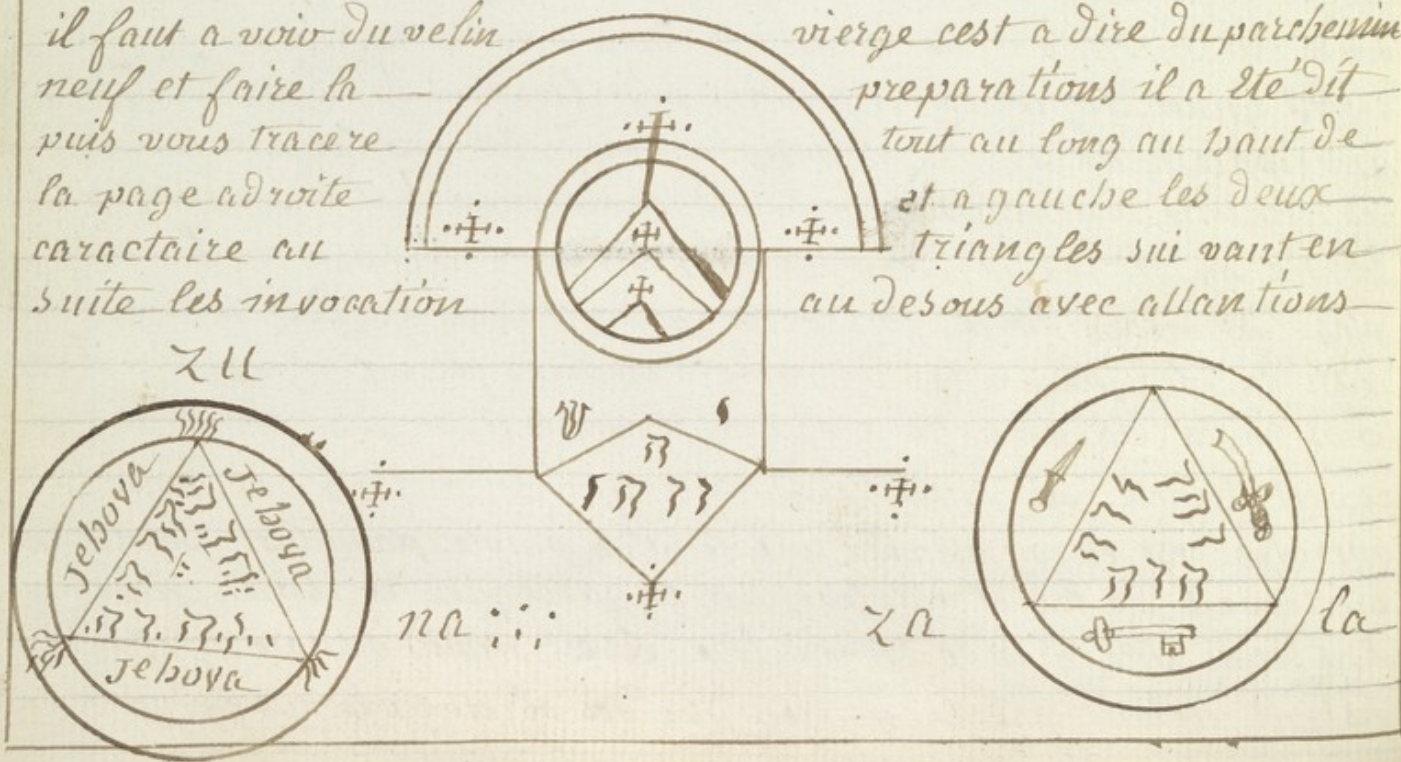 il faut a voir du velin vierge cest a dire du parchemin
neuf et faire la preparations il a été dit
puis vous tracere tout au long au haut de
la page adroite et a gauche les deux
caractaire au triangles sui vant en
suite les invocation au desous avec attantions
Zu
Jehova
Jehova
Jehova
na
za
la